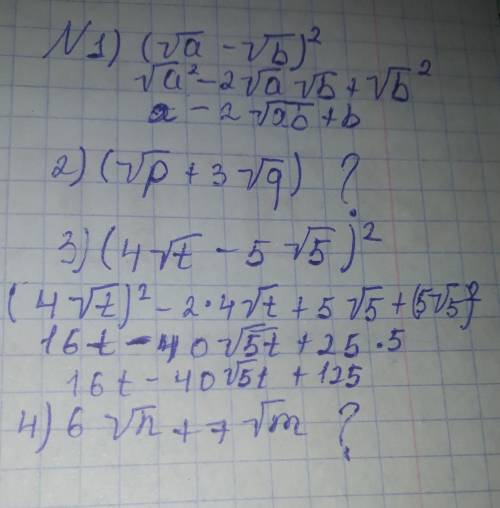 N1) (√a - √b)²
√a² - 2√a √b + √b²
a - 2√ab + b
2) (√p + 3√q) ?
3) (4√t - 5√5)²
(4√t)² - 2·4√t + 5√5 + (5√5)²
16t - 40√5t + 25·5
16t - 40√5t + 125
4) 6√n + 7√m ?